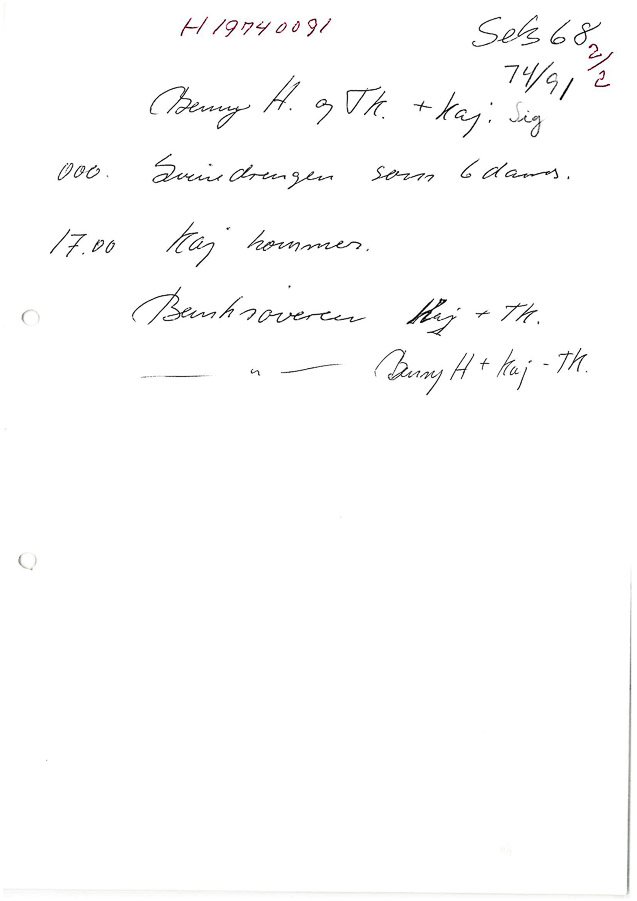 H 19740091
Sels 68
2/2
74/91
Benny H. og TK. + Kaj. Sig
000. Svinedrengen som 6 dans.
17.00 Kaj kommer.
Benh røveren Kaj + TK.
— " — Benny H + Kaj - TK.